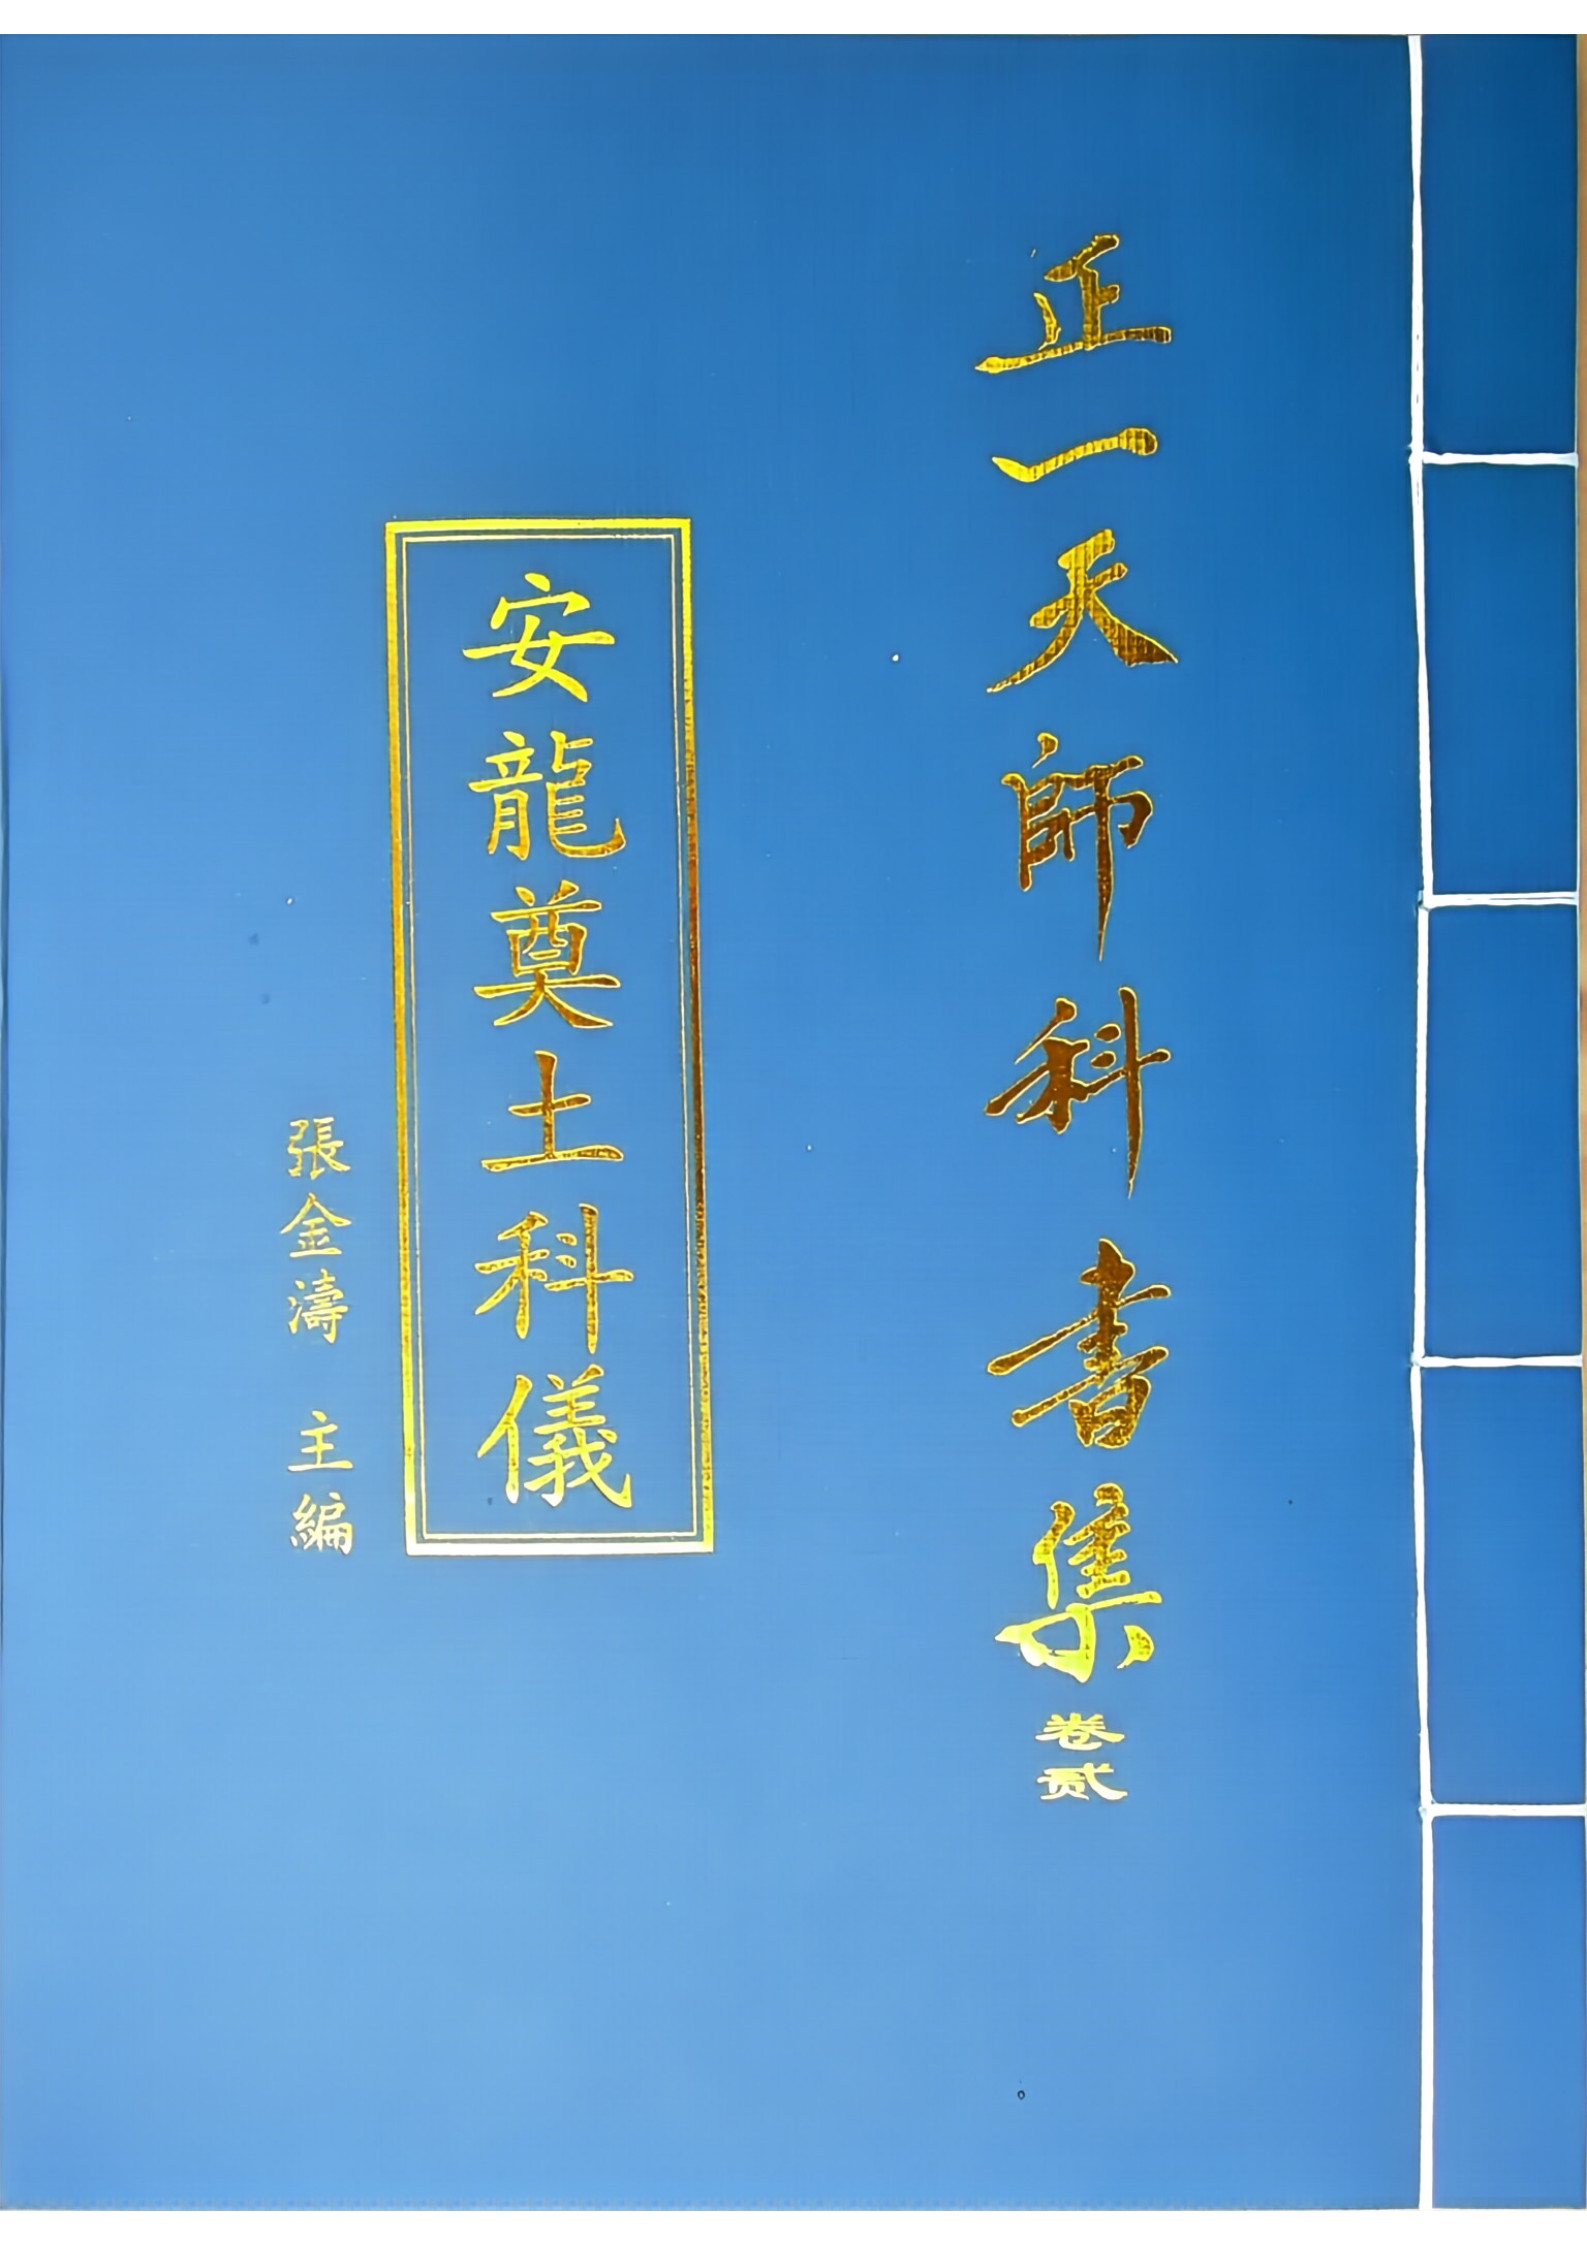 正一天師科書集 卷贰
安龍奠土科儀
張金濤 主編